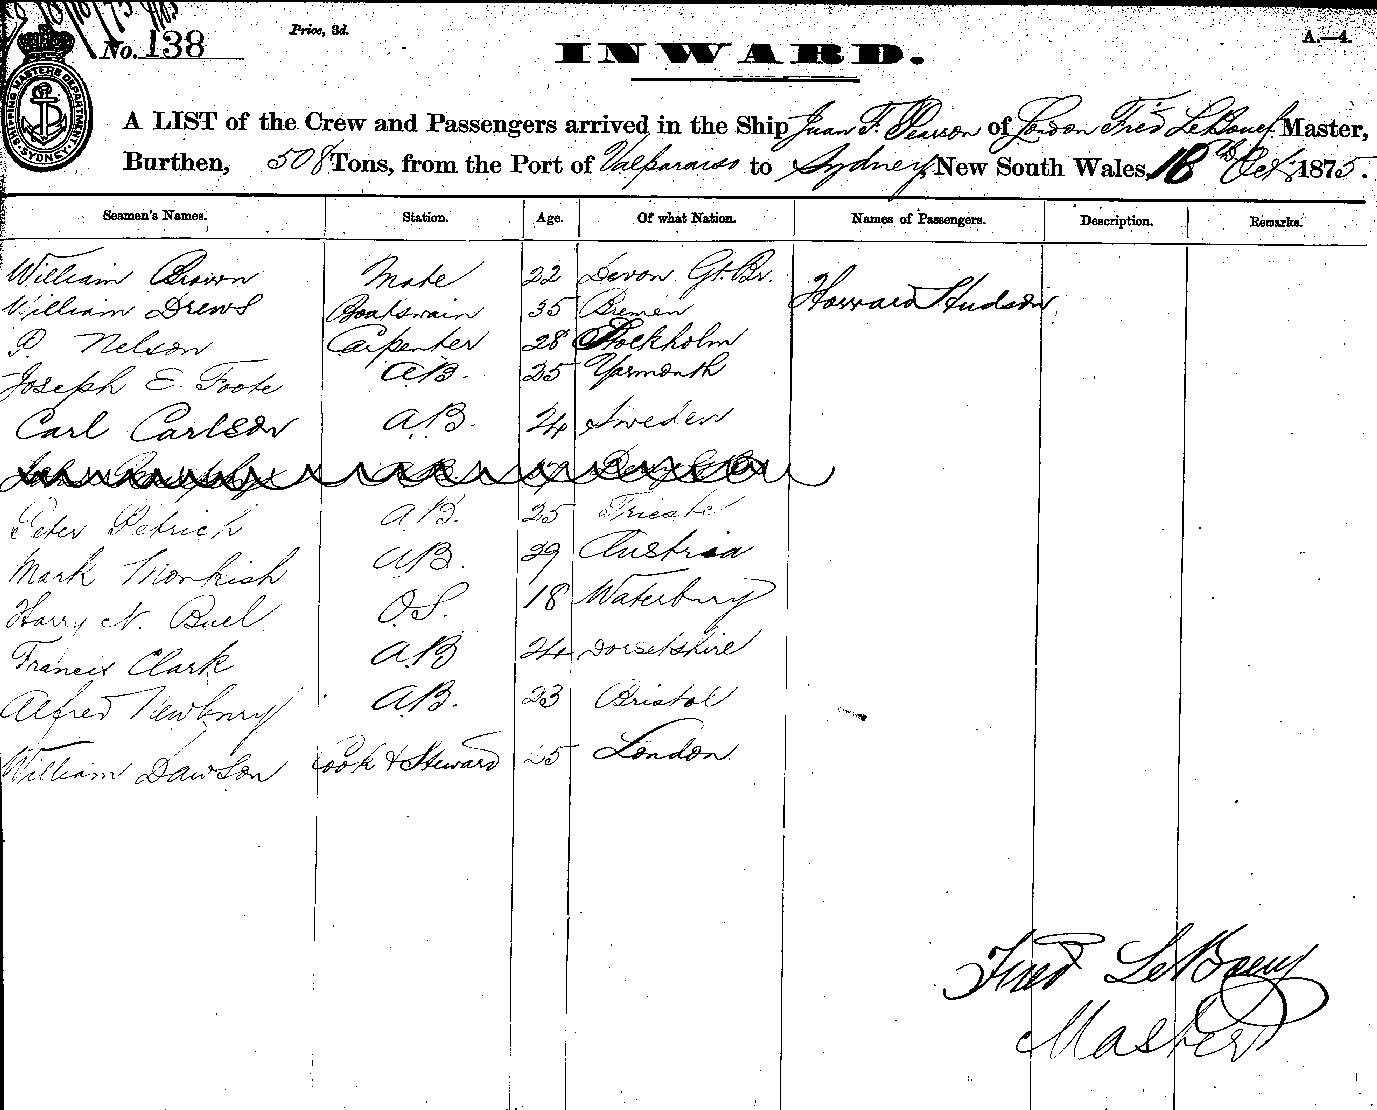 No. 138
Price, 3d.
INWARD.
A.—4.
SHIPPING MASTERS DEPARTMENT SYDNEY
A LIST of the Crew and Passengers arrived in the Ship Juan F. Pearson of London Fred LeBoeuf Master,
Burthen, 508 Tons, from the Port of Valparaiso to Sydney New South Wales, 18th Oct. 1875.
Seamen's Names. Station. Age. Of what Nation. Names of Passengers. Description. Remarks.
William Brown Mate 22 Devon Gt. Br.
Howard Hudson
William Drews Boatswain 35 Bremen
P. Nelson Carpenter 28 Stockholm
Joseph E Foote A.B. 25 Yarmouth
Carl Carlson A.B. 24 Sweden
Peter Petrich A.B. 25 Trieste
Mark Monkish A.B. 29 Austria
Harry N. Buel O.S. 18 Waterbury
Francis Clark A.B 24 Dorsetshire
Alfred Newbury A.B. 23 Bristol
William Dawson Cook & Steward 25 London
Fred LeBoeuf
Master